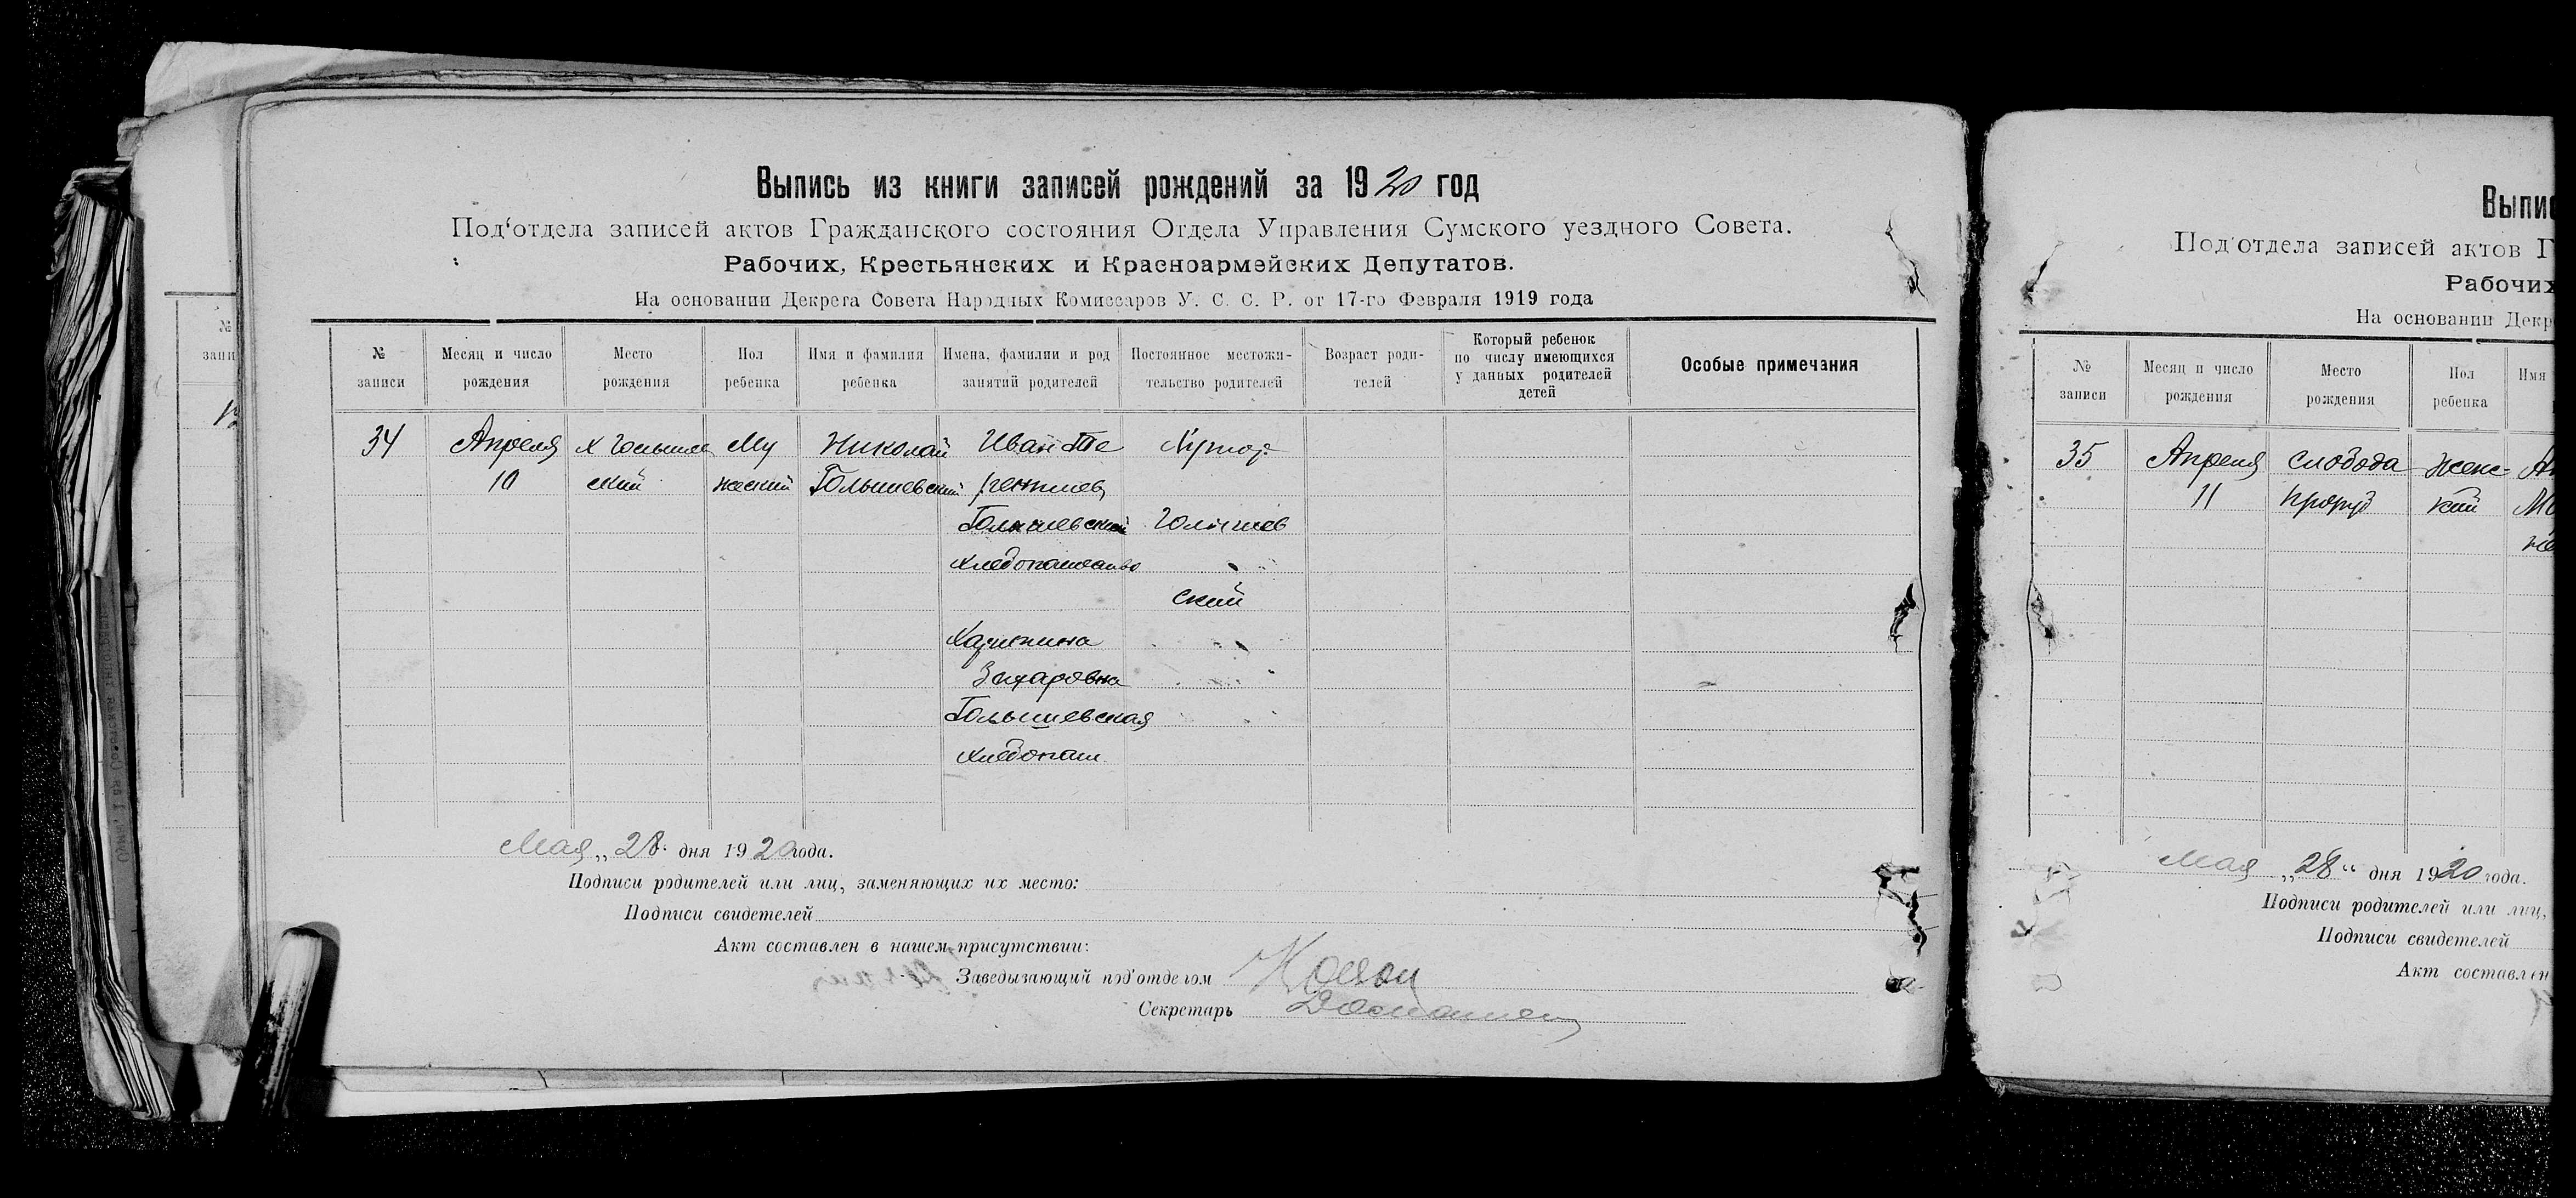 Выпись из книги записей рождений за 1920 год
Под‘отдела записей актов Гражданского состояния Отдела Управления Сумского уездного Совета.
Рабочих, Крестьянских и Красноармейских Депутатов.
На основании Декрета Совета Народных Комиссаров У. С. С. Р. от 17-го Февраля 1919 года
№ записи
Месяц и число рождения
Место рождения
Пол ребенка
Имя и фамилия ребенка
Имена, фамилии и род занятий родителей
Постоянное местожительство родителей
Возраст родителей
Который ребенок по числу имеющихся у данных родителей детей
Особые примечания
34
Апреля
10
Му
жеский
Николай
Голышевский
Иван Те
рентиев
Голышевский
хлебопашество
Захаровна
Голышевская
хлебопаш.
Хутор
Голышев
ский
Мая „ 28 дня 1920 года.
Подписи родителей или лиц, заменяющих их место:
Подписи свидетелей
Акт составлен в нашем присутствии:
Заведывающий под‘отделом
Секретарь
Выпис
Под‘отдела записей актов Г
Рабочих
На основании Декр
№ записи
Месяц и число рождения
Место рождения
Пол ребенка
Имя
35
Апреля
11
слобода
Женс-
кий
Мая „28“ дня 1920 года.
Подписи родителей или лиц,
Подписи свидетелей
Акт составлен